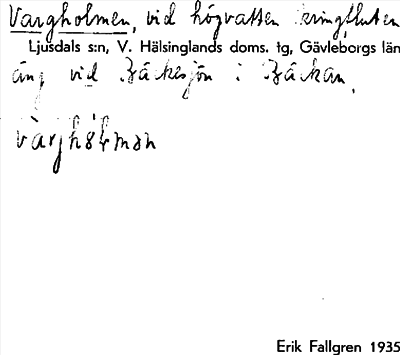 Vargholmen, vid högvatten kringfluten
Ljusdals s:n, V. Hälsinglands doms. tg, Gävleborgs län
äng vid Bäckesjön i Bäckan.
Erik Fallgren 1935